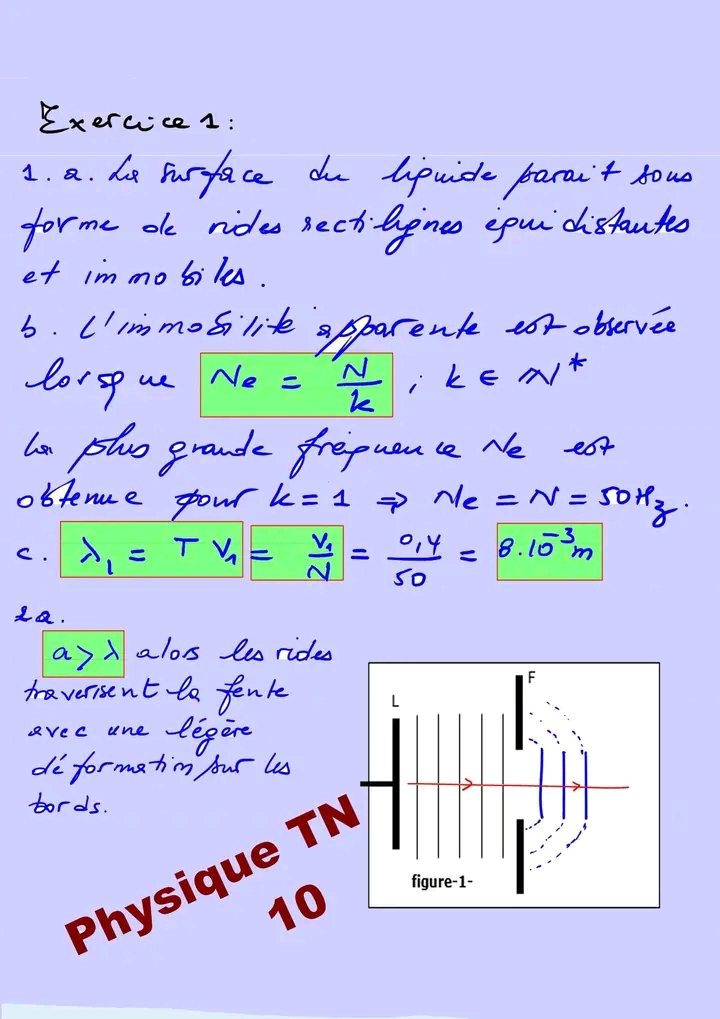 Exercice 1:
1. a. La surface du liquide parait sous
forme de rides rectilignes équidistantes
et immobiles.
b. L'immobilité apparente est observée
lorsque Ne = N/k ; k ∈ ℕ*
La plus grande fréquence Ne est
obtenue pour k=1 ⇒ Ne = N = 50Hz.
c. λ₁ = T V₁ = V₁/N = 0,4/50 = 8.10⁻³m
2a.
a > λ alors les rides
traversent la fente
avec une légère
déformation sur les
bords.
L
F
figure-1-
Physique TN
10